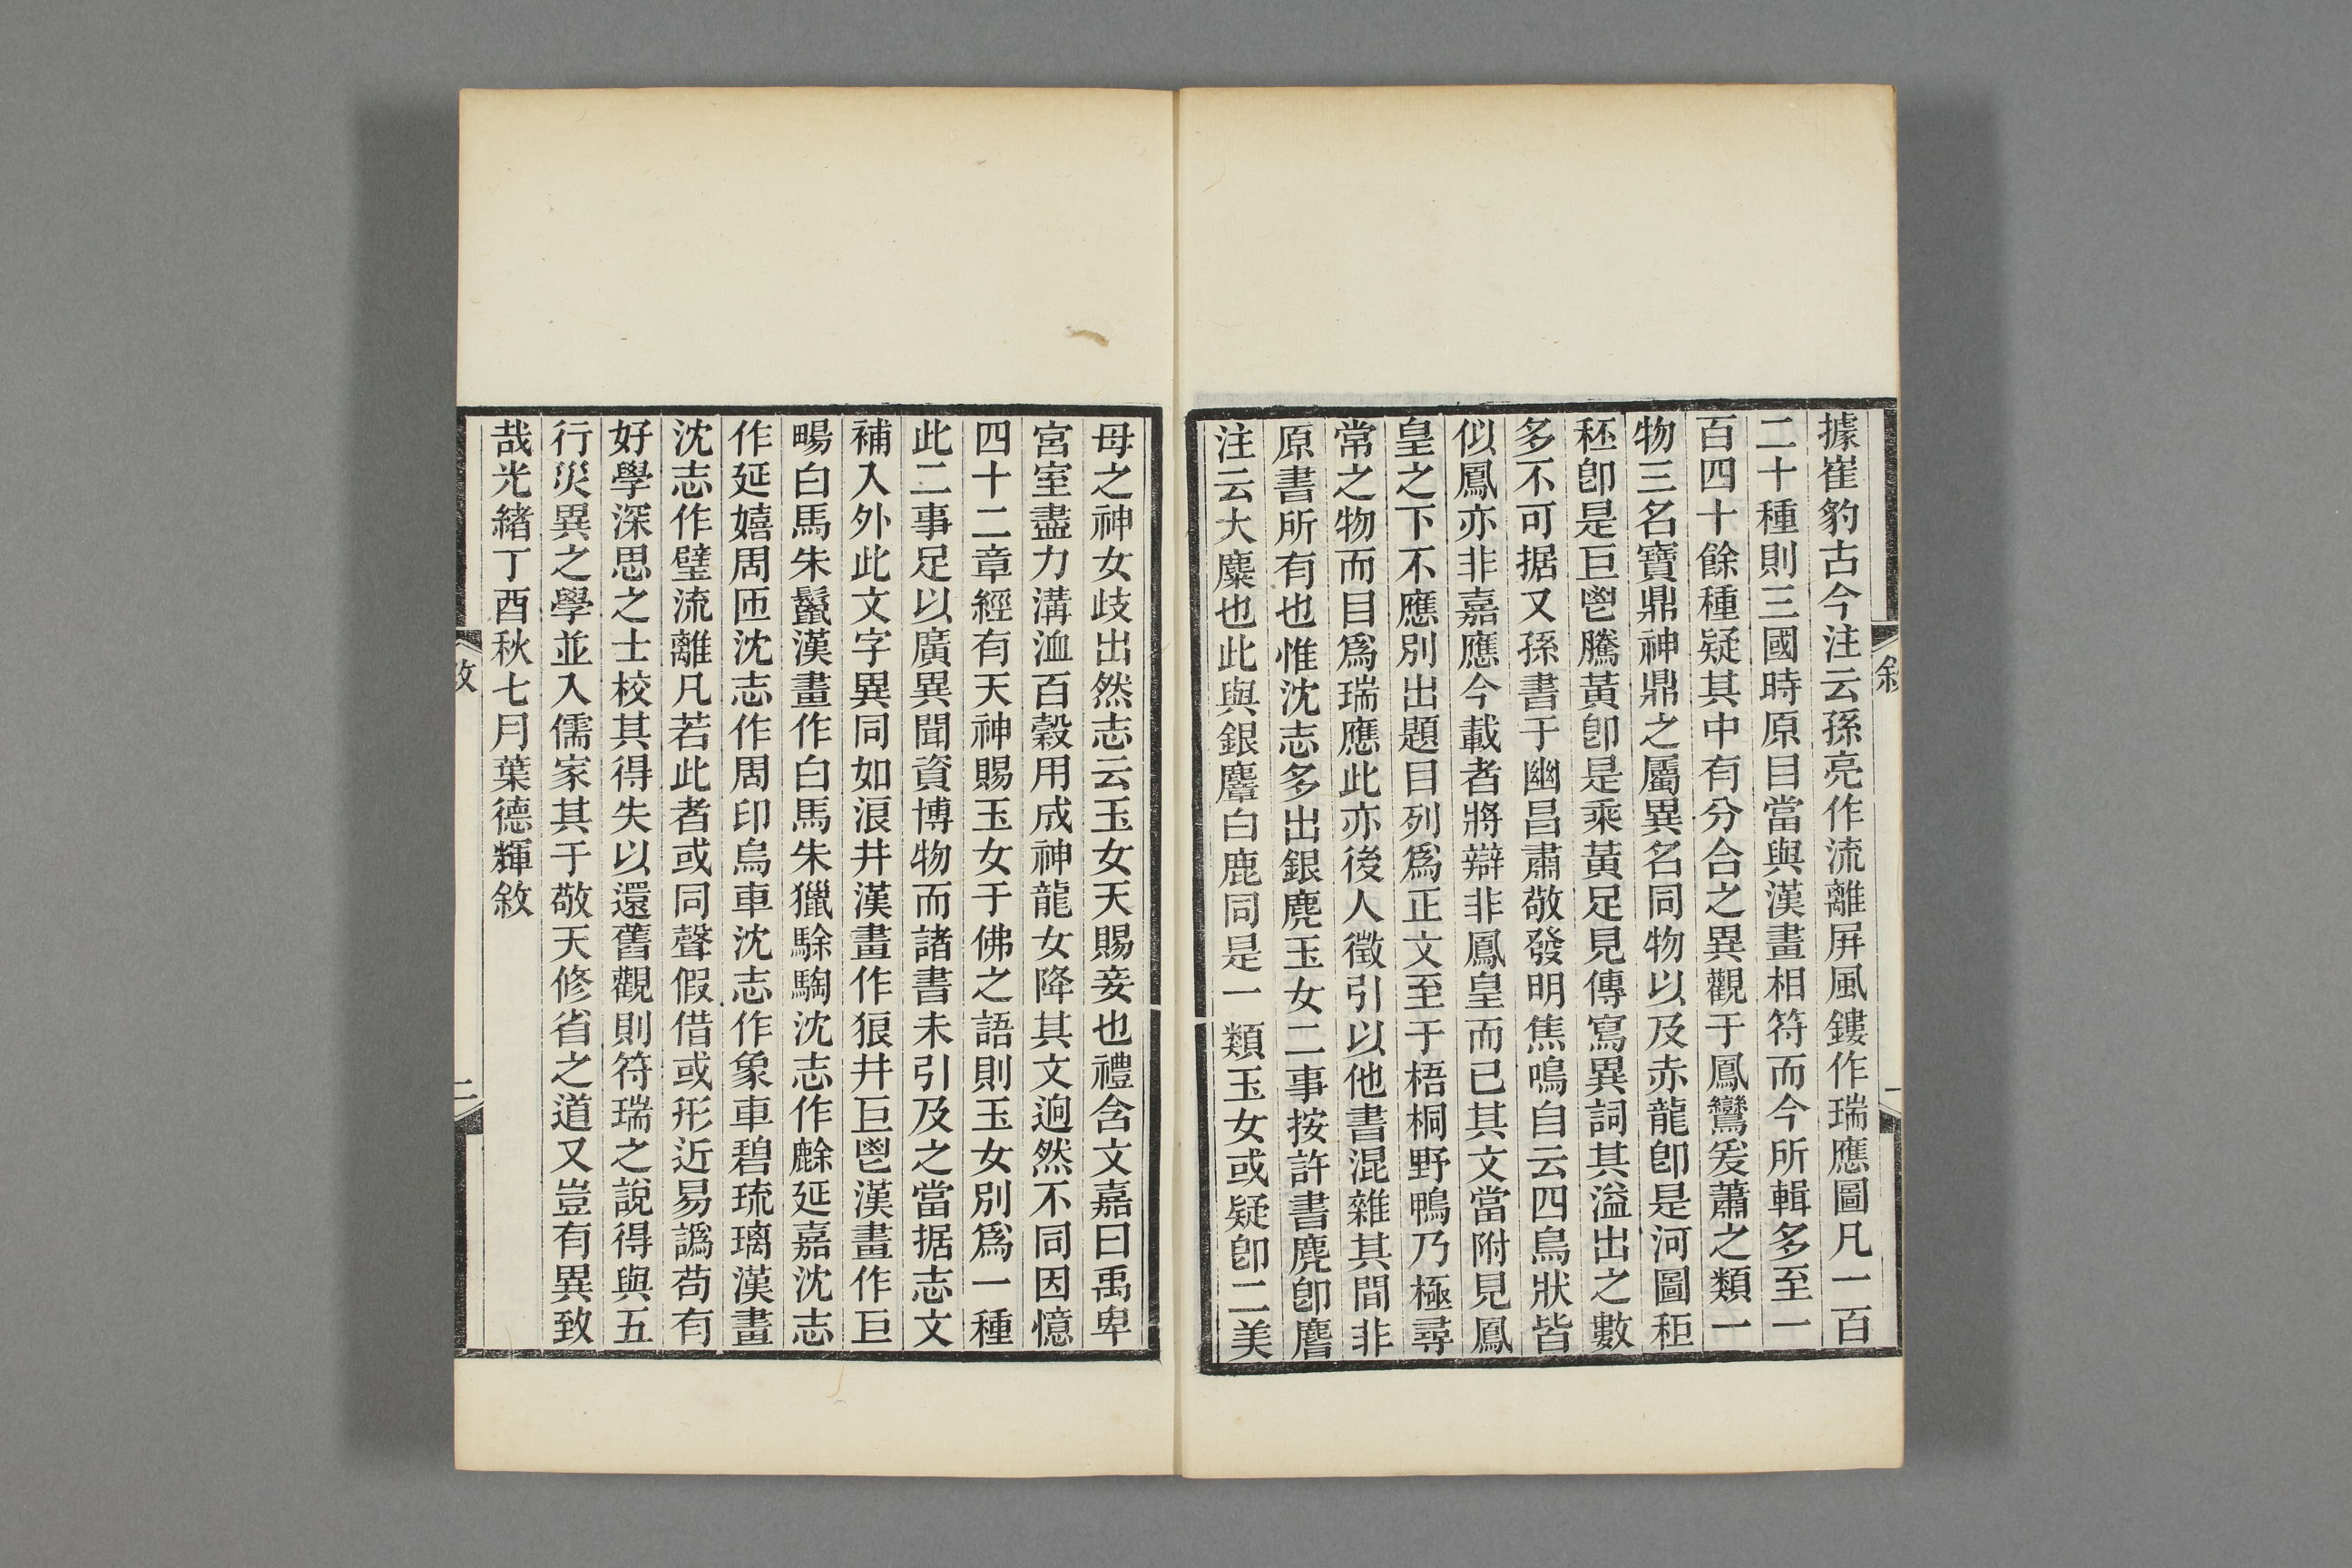 據崔豹古今注云孫亮作流離屏風鏤作瑞應圖凡一百
二十種則三國時原目當與漢畫相符而今所輯多至一
百四十餘種疑其中有分合之異觀于鳳鸞爰蕭之類一
物三名寶鼎神鼎之屬異名同物以及赤龍卽是河圖秬
秠卽是巨鬯騰黃卽是乘黃足見傳寫異詞其溢出之數
多不可据又孫書于幽昌肅敬發明焦鳴自云四鳥狀皆
似鳳亦非嘉應今載者將辯非鳳皇而已其文當附見鳳
皇之下不應別出題目列爲正文至于梧桐野鴨乃極尋
常之物而目爲瑞應此亦後人徵引以他書混雜其間非
原書所有也惟沈志多出銀麂玉女二事按許書麂卽麔
注云大麋也此與銀麞白鹿同是一類玉女或疑卽二美
敘
一
母之神女歧出然志云玉女天賜妾也禮含文嘉曰禹卑
宮室盡力溝洫百穀用成神龍女降其文迥然不同因憶
四十二章經有天神賜玉女于佛之語則玉女別爲一種
此二事足以廣異聞資博物而諸書未引及之當据志文
補入外此文字異同如浪井漢畫作狼井巨鬯漢畫作巨
暢白馬朱鬣漢畫作白馬朱獵駼騊沈志作䮫延嘉沈志
作延嬉周匝沈志作周印烏車沈志作象車碧琉璃漢畫
沈志作璧流離凡若此者或同聲假借或形近易譌苟有
好學深思之士校其得失以還舊觀則符瑞之說得與五
行災異之學並入儒家其于敬天修省之道又豈有異致
哉光緖丁酉秋七月葉德輝敘
敘
二